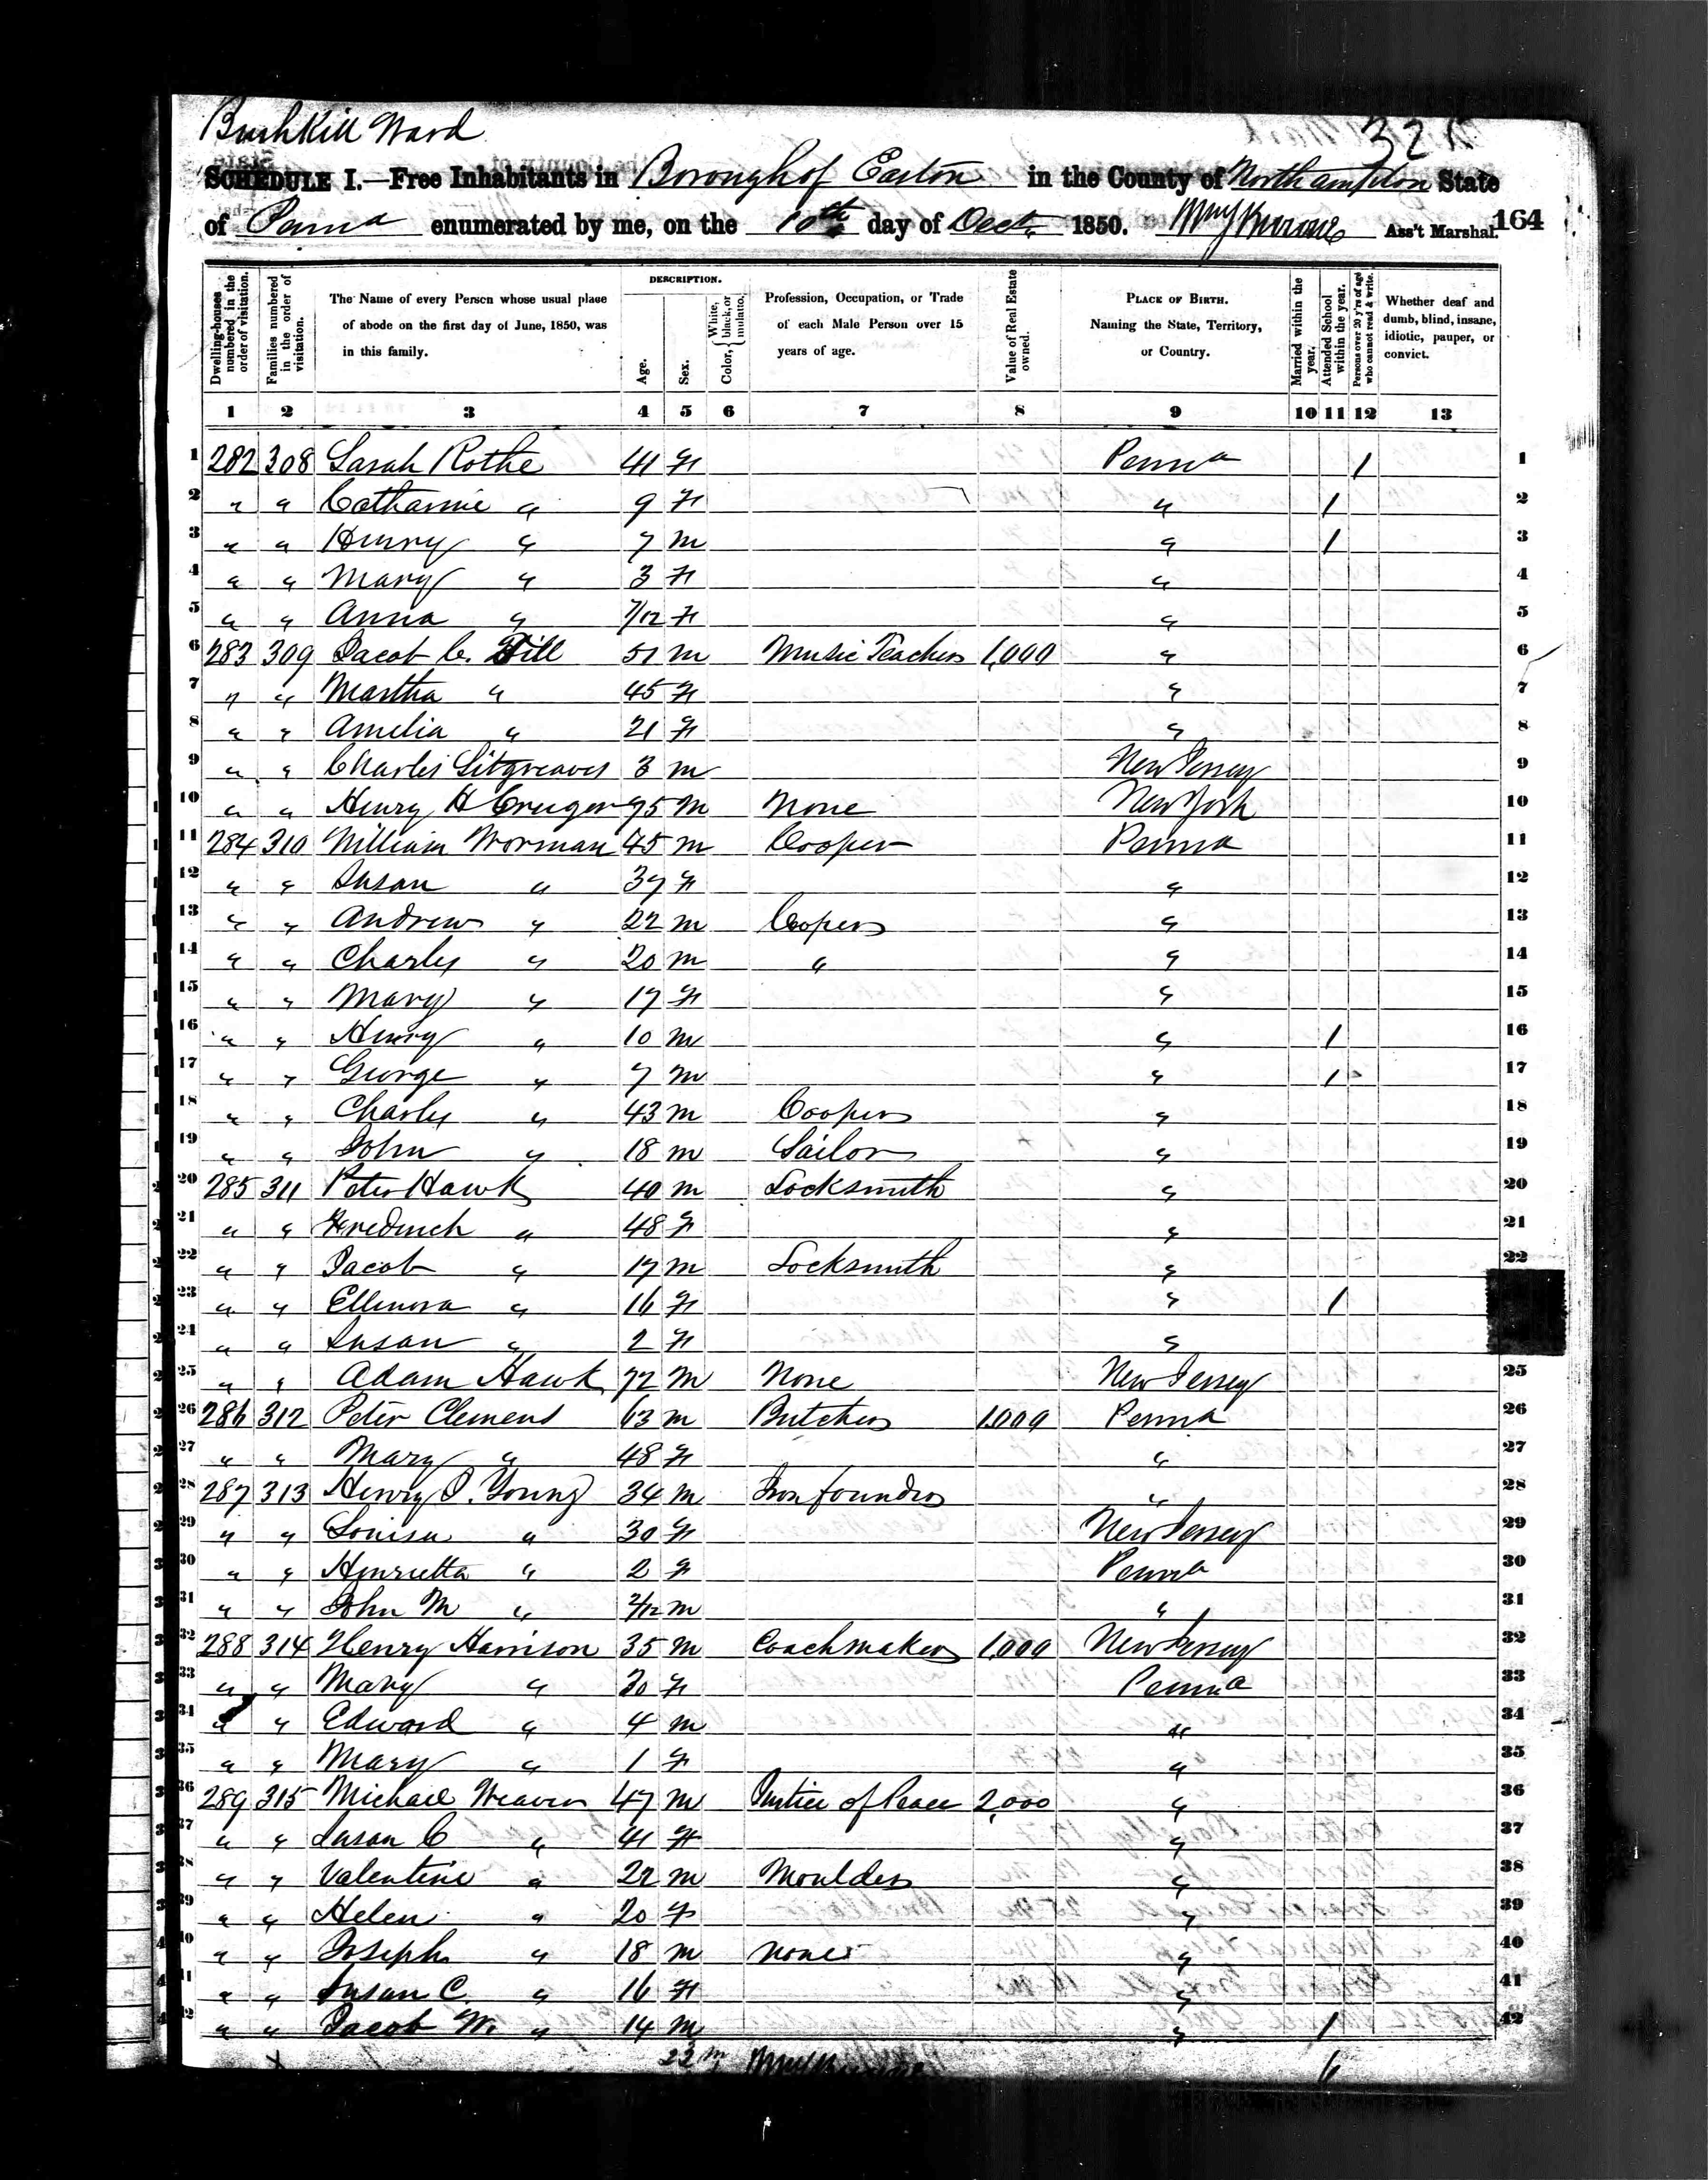 Bushkill Ward
SCHEDULE I.—Free Inhabitants in Borough of Easton in the County of Northampton State
of Penna enumerated by me, on the 10th day of Oct. 1850. Ass't Marshal. 164
Dwelling-houses numbered in the order of visitation.
Families numbered in the order of visitation.
The Name of every Person whose usual place of abode on the first day of June, 1850, was in this family.
DESCRIPTION.
Age.
Sex.
Color, White, black, or mulatto.
Profession, Occupation, or Trade of each Male Person over 15 years of age.
Value of Real Estate owned.
PLACE OF BIRTH. Naming the State, Territory, or Country.
Married within the year.
Attended School within the year.
Persons over 20 y'rs of age who cannot read & write.
Whether deaf and dumb, blind, insane, idiotic, pauper, or convict.
1 2 3 4 5 6 7 8 9 10 11 12 13
1 282 308 Sarah Rothe 41 F Penna / 1
2 " " Catharine " 9 F " / 2
3 " " Henry " 7 m " / 3
4 " " Mary " 3 F " 4
5 " " Anna " 7/12 F " 5
6 283 309 Jacob C. Dill 51 m Music Teacher 1,000 " 6
7 " " Martha " 45 F " 7
8 " " Amelia " 21 F " 8
9 " " Charles Sitgreaves 3 m New Jersey 9
10 " " Henry H Cruger 75 m None New York 10
11 284 310 William Worman 45 m Cooper Penna 11
12 " " Susan " 37 F " 12
13 " " Andrew " 22 m Cooper " 13
14 " " Charles " 20 m " " 14
15 " " Mary " 17 F " 15
16 " " Henry " 10 m " / 16
17 " " George " 7 m " / 17
18 " " Charles " 43 m Cooper " 18
19 " " John " 18 m Sailor " 19
20 285 311 Peter Hawk 40 m Locksmith " 20
21 " " Fredrich " 48 F " 21
22 " " Jacob " 17 m Locksmith " 22
23 " " Ellenora " 16 F " /
24 " " Susan " 2 F "
25 " " Adam Hawk 72 m None New Jersey 25
26 286 312 Peter Clemens 63 m Butcher 1,000 Penna 26
27 " " Mary " 48 F " 27
28 287 313 Henry J. Young 34 m Iron founder " 28
29 " " Louisa " 30 F New Jersey 29
30 " " Henrietta " 2 F Penna 30
31 " " John M " 2/12 m " 31
32 288 314 Henry Harrison 35 m Coachmaker 1,000 New Jersey 32
33 " " Mary " 30 F Penna 33
34 " " Edward " 4 m " 34
35 " " Mary " 1 F " 35
36 289 315 Michael Weaver 47 m Justice of Peace 2,000 " 36
37 " " Susan C " 41 F " 37
38 " " Valentine " 22 m Moulder " 38
39 " " Helen " 20 F " 39
40 " " Joseph " 18 m none " 40
41 " " Susan C. " 16 F " 41
42 " " Jacob W. " 14 m " / 42
22 m 6